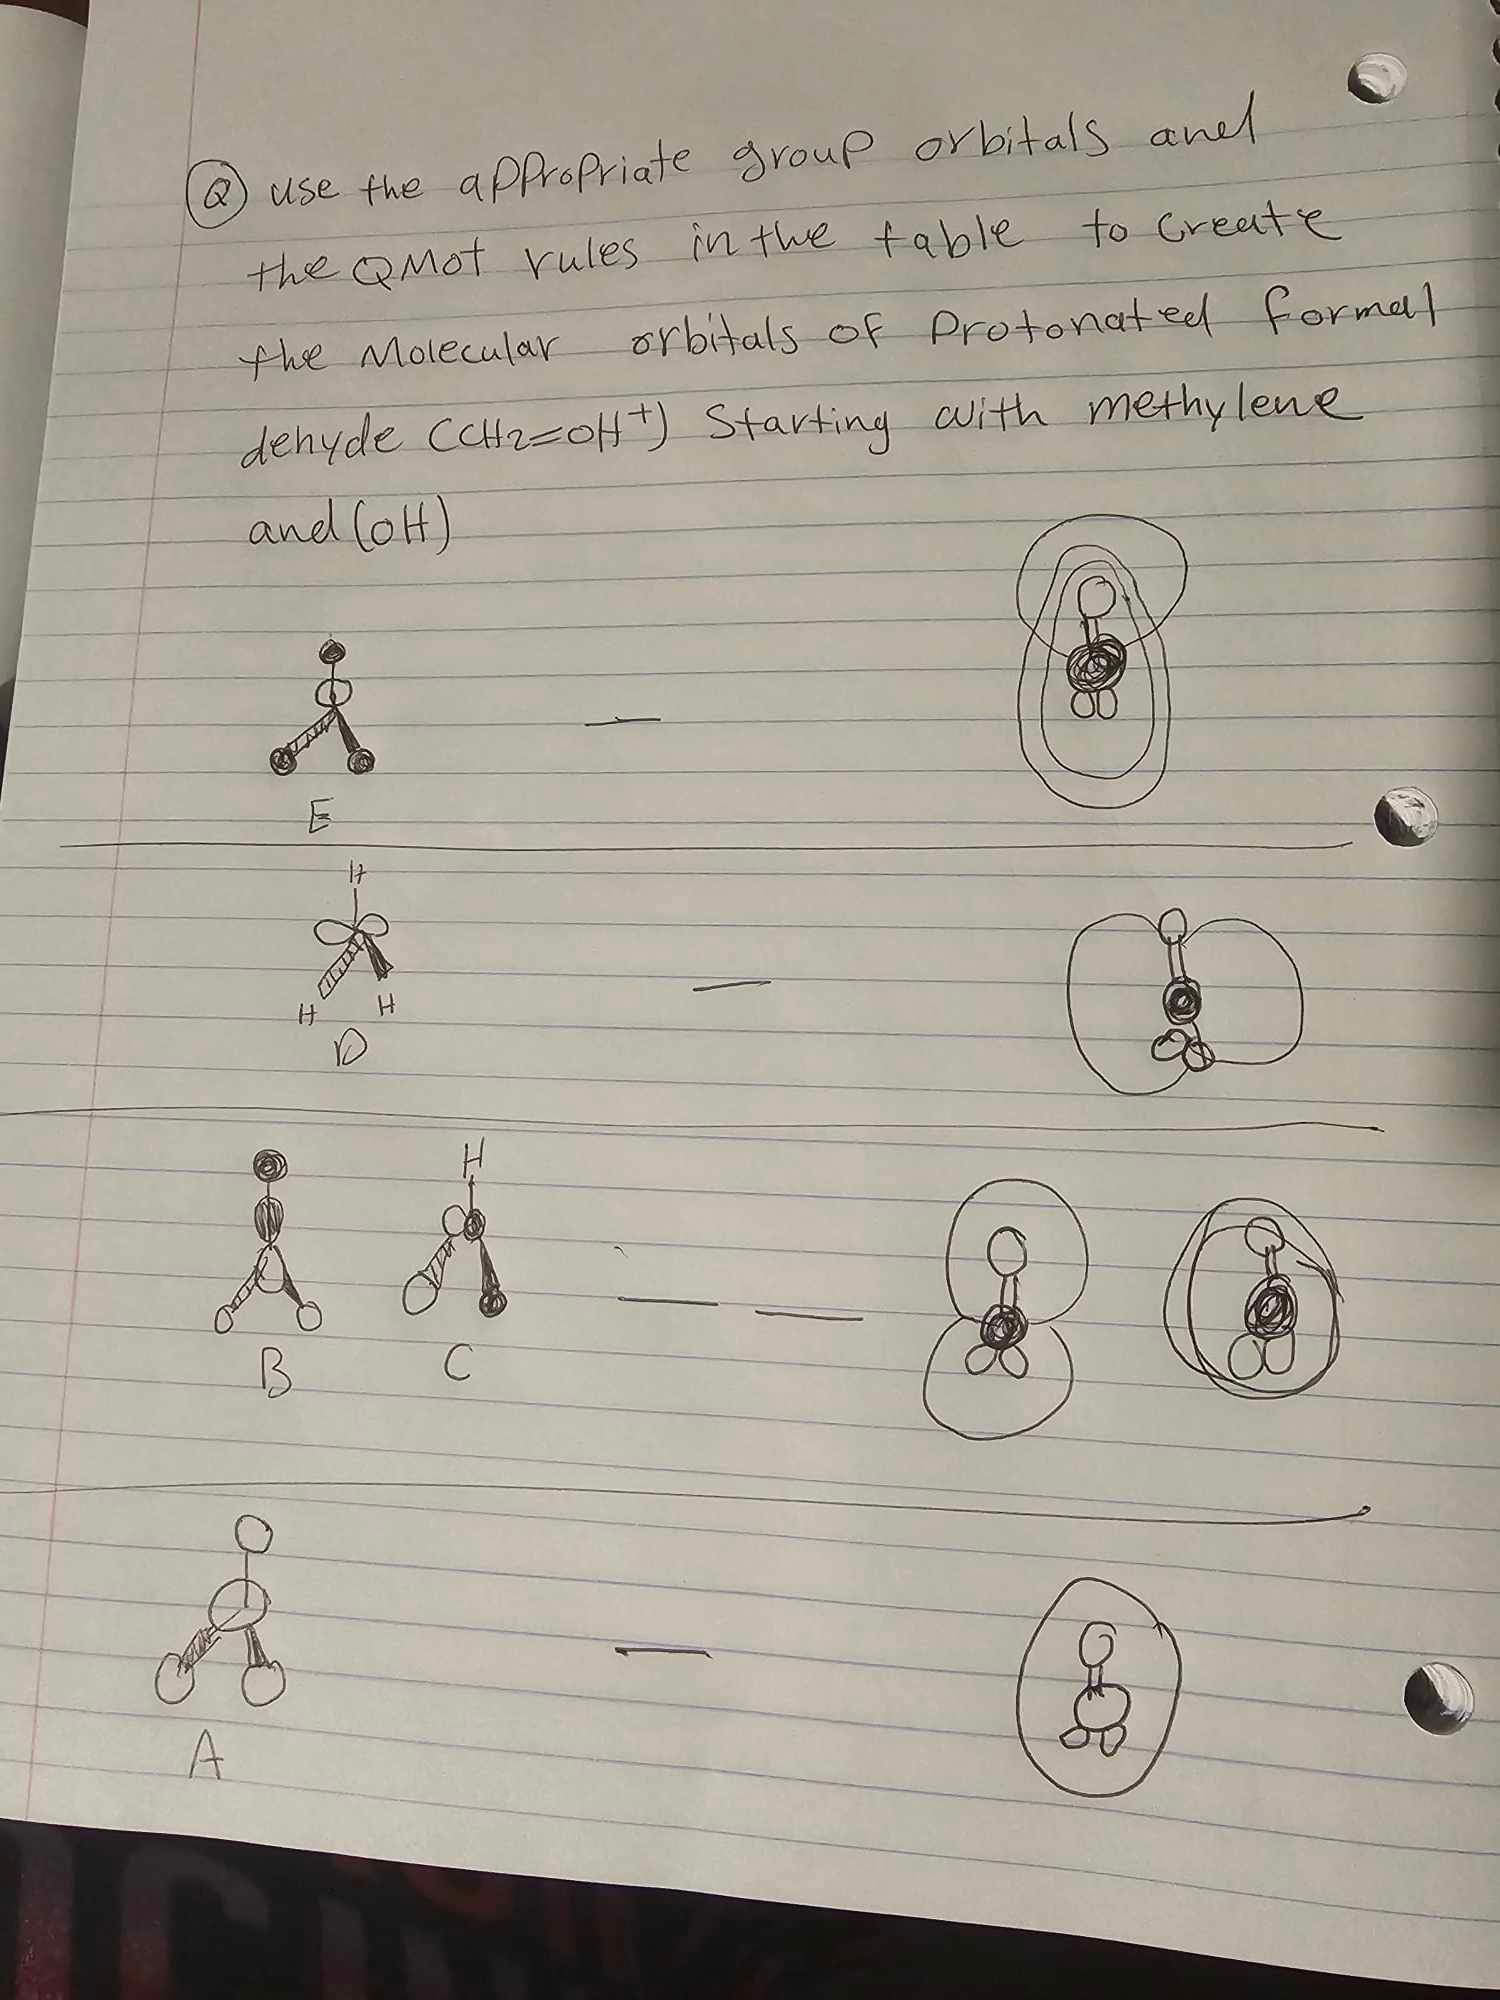 Q use the appropriate group orbitals and
the QMOT rules in the table to create
the Molecular orbitals of Protonated formal
dehyde (CH2=OH+) Starting with methylene
and (OH)
E
H
H H
D
H
B C
A